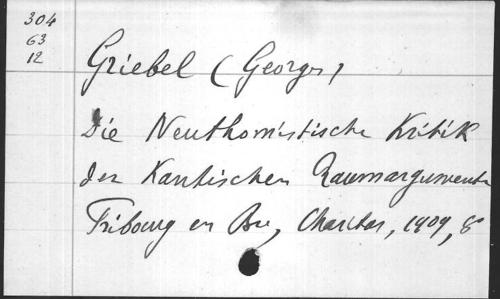 304
63
12
Griebel (Georges)
Die Neuthomistische Kritik
der Kantischen Raumargumente
Fribourg en Br., Charitas, 1909, 8°